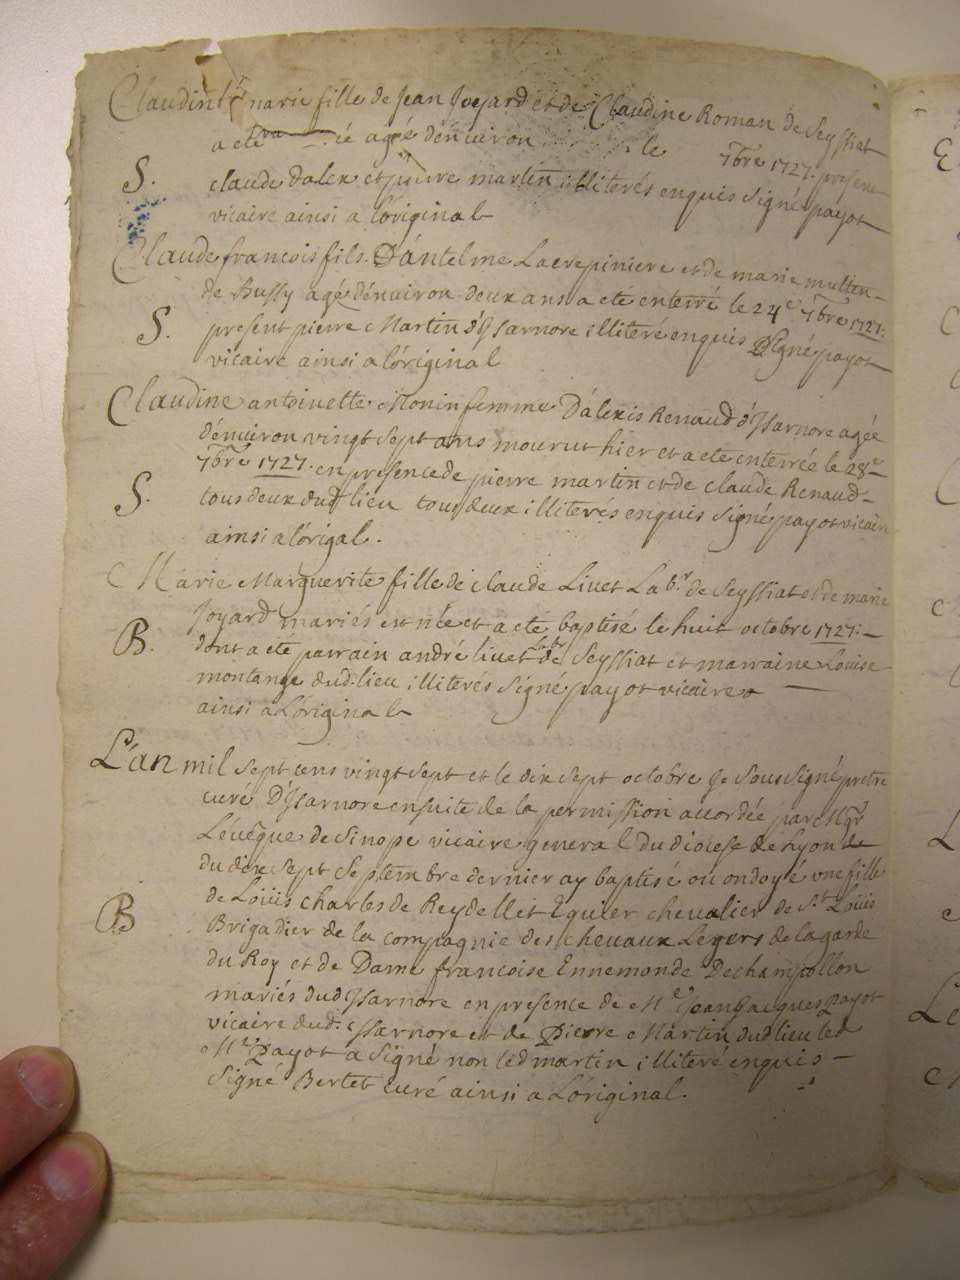 Claudine marie fille de Jean Joyard et de Claudine Roman de Seyssiat
a eté agée d'enuiron le 7bre 1727. present
S. claude dalex et pierre martin illiterés enquis signé payot
vicaire ainsi a l'original
Claude francois fils. D'antelme Lacrepiniere et de marie mullen-
de Bussy agé d'enuiron deux ans a eté enterré le 24e 7bre 1727:
S. present pierre Martin d'Jsarnore illiteré enquis Signé payot
vicaire ainsi a l'original
Claudine antoinette Monin femme D'alexis Renaud d'Jsarnore agée
d'enuiron vingt sept ans mourut hier et a eté enterrée le 28e
7bre 1727. en presence de pierre martin et de claude Renaud-
S. tous deux dud lieu tous deux illiterés enquis signé payot vicaire
ainsi a l'origal.
Marie Marguerite fille de claude Livet Labr. de Seyssiat et de marie
Joyard mariés est née et a eté baptisé le huit octobre 1727:-
B. dont a été parrain andré livet labr de Seyssiat et marraine Louise
montange dud. lieu illiterés signé payot vicaire
ainsi a L'original
L'an mil sept cens vingt sept et le dix sept octobre Je soussigné pretre
curé D'Jsarnore ensuite de la permission accordée par Mgr
L'éuêque de Sinope vicaire general du diocese de Lyon de
du dix sept Septembre dernier ay baptisé ou ondoyé une fille
de Loüis charles de Reydellet Equier chevalier de St. Loüis
B Brigadier de la compagnie des chevaux Legers de la garde
du Roy et de Dame francoise Ennemonde Dechampollon
mariés dud Jsarnore en presence de Mre Jean Jacques payot
vicaire dud. Jssarnore et de Pierre Martin dud lieu led
Mre Payot a signé non led martin illiteré enquis-
signé Bertet curé ainsi a L'original.